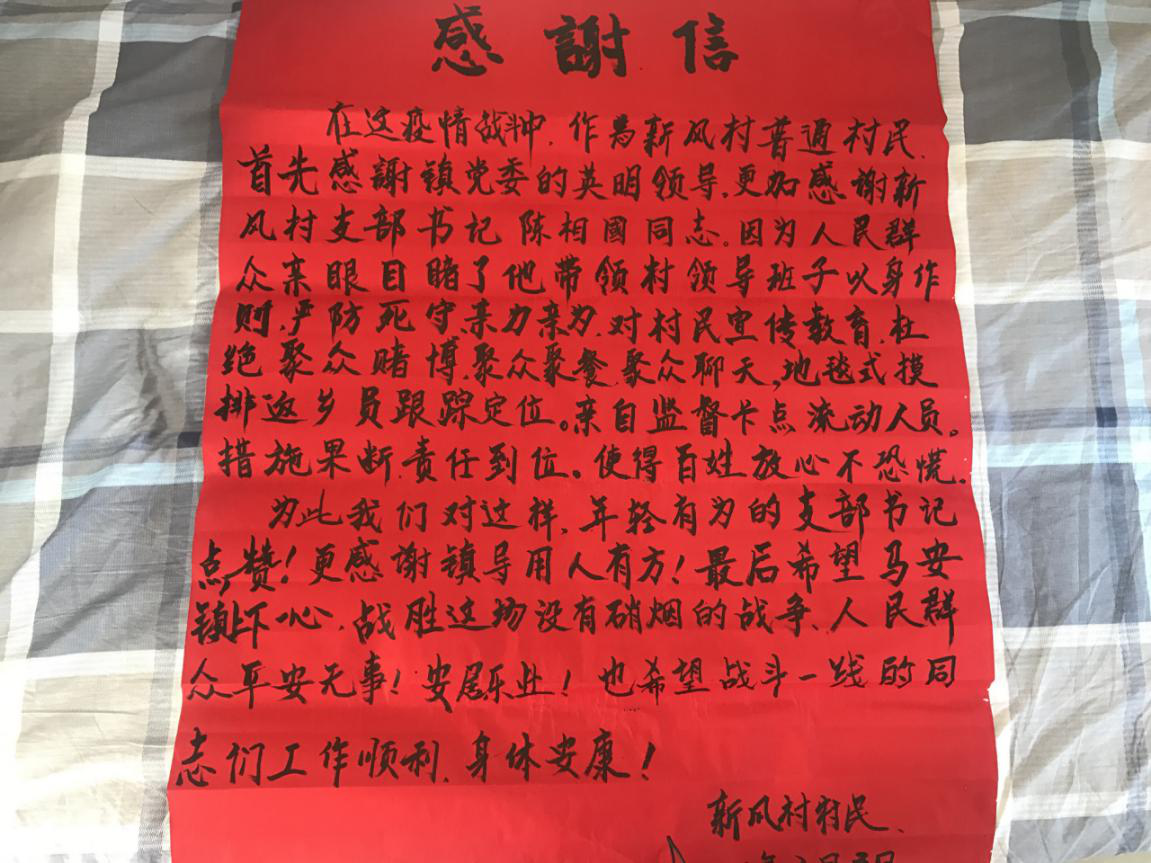 感謝信
在这疫情战斗中，作为新风村普通村民、
首先感謝镇党委的英明领导，更加感谢新
风村支部书记陈相國同志。因为人民群
众亲眼目睹了他带领村领导班子以身作
则、严防死守、亲力亲为、对村民宣传教育、杜
绝聚众赌博、聚众聚餐、聚众聊天，地毯式摸
排返乡员跟踪定位。亲自监督卡点流动人员。
措施果断、责任到位。使得百姓放心不恐慌。
为此我们对这样，年轻有为的支部书记
点赞！更感谢镇导用人有方！最后希望马安
镇上下一心、战胜这场没有硝烟的战争、人民群
众平安无事！安居乐业！也希望战斗一线的同
志们工作顺利、身体安康！
新风村村民、